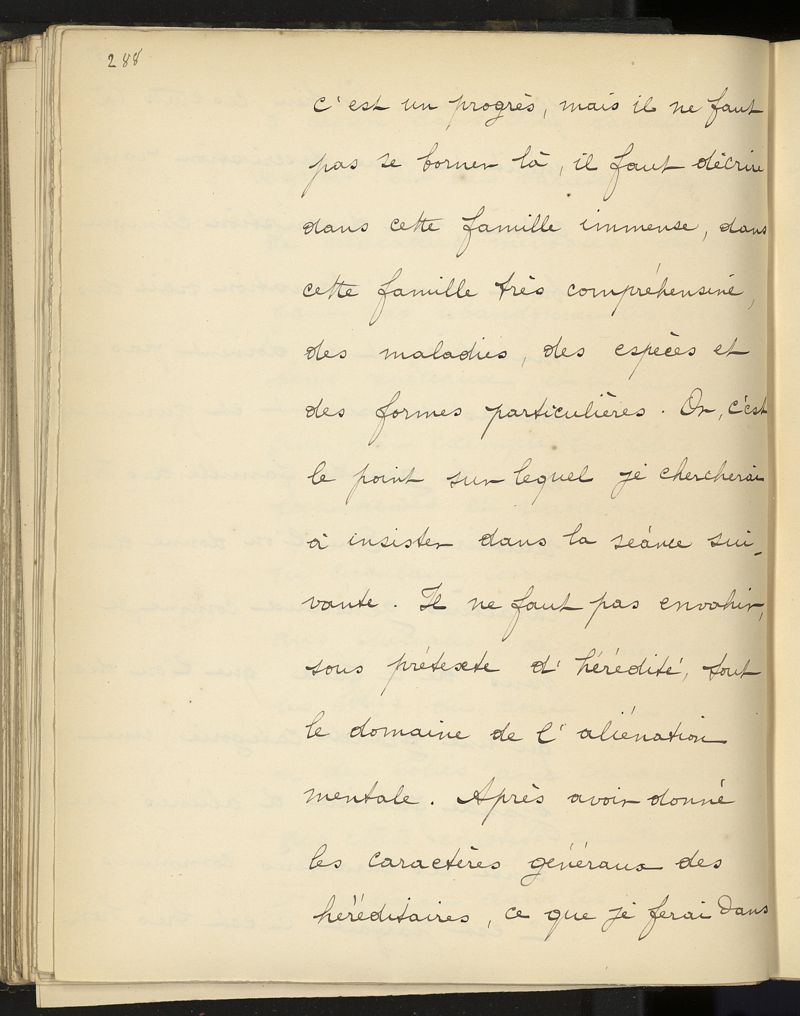 288
c'est un progrès, mais il ne faut
pas se borner là, il faut décrire
dans cette famille immense, dans
cette famille très compréhensive,
des maladies, des espèces et
des formes particulières. Or, c'est
le point sur lequel je chercherai
à insister dans la séance sui-
vante. Il ne faut pas envahir,
sous prétexte d'hérédité, tout
le domaine de l'aliénation
mentale. Après avoir donné
les caractères généraux des
héréditaires, ce que je ferai dans